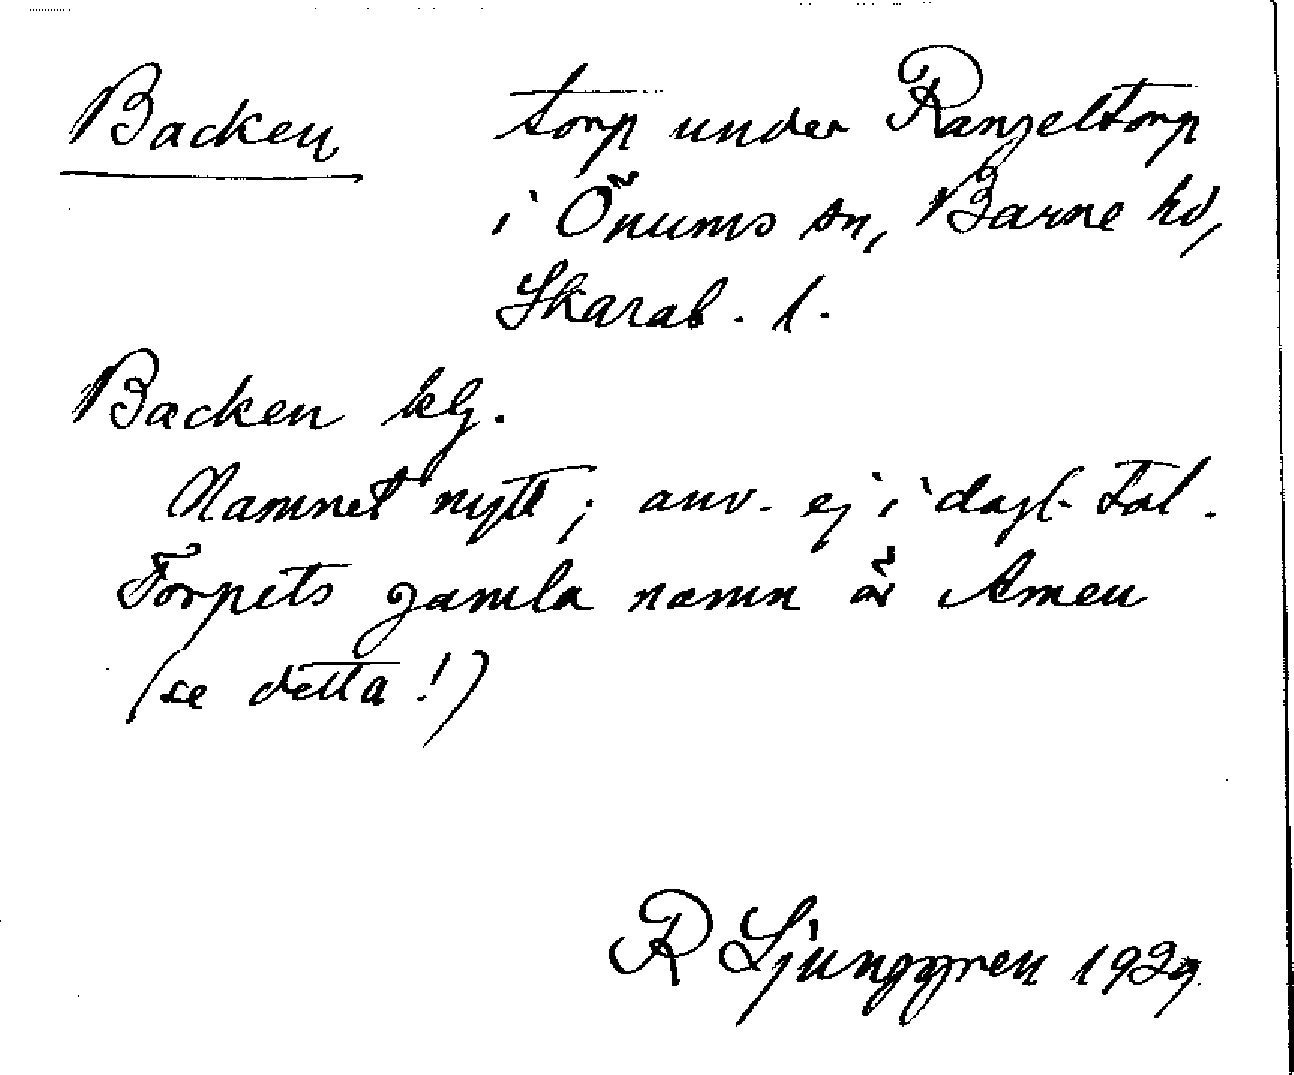 Backen torp under Ranzeltorp
i Önums sn, Barne hd,
Skarab. l.
Backen klg.
Namnet nytt; anv. ej i dagl. tal.
Torpets gamla namn är Amen
(se detta!)
R Ljunggren 1929.